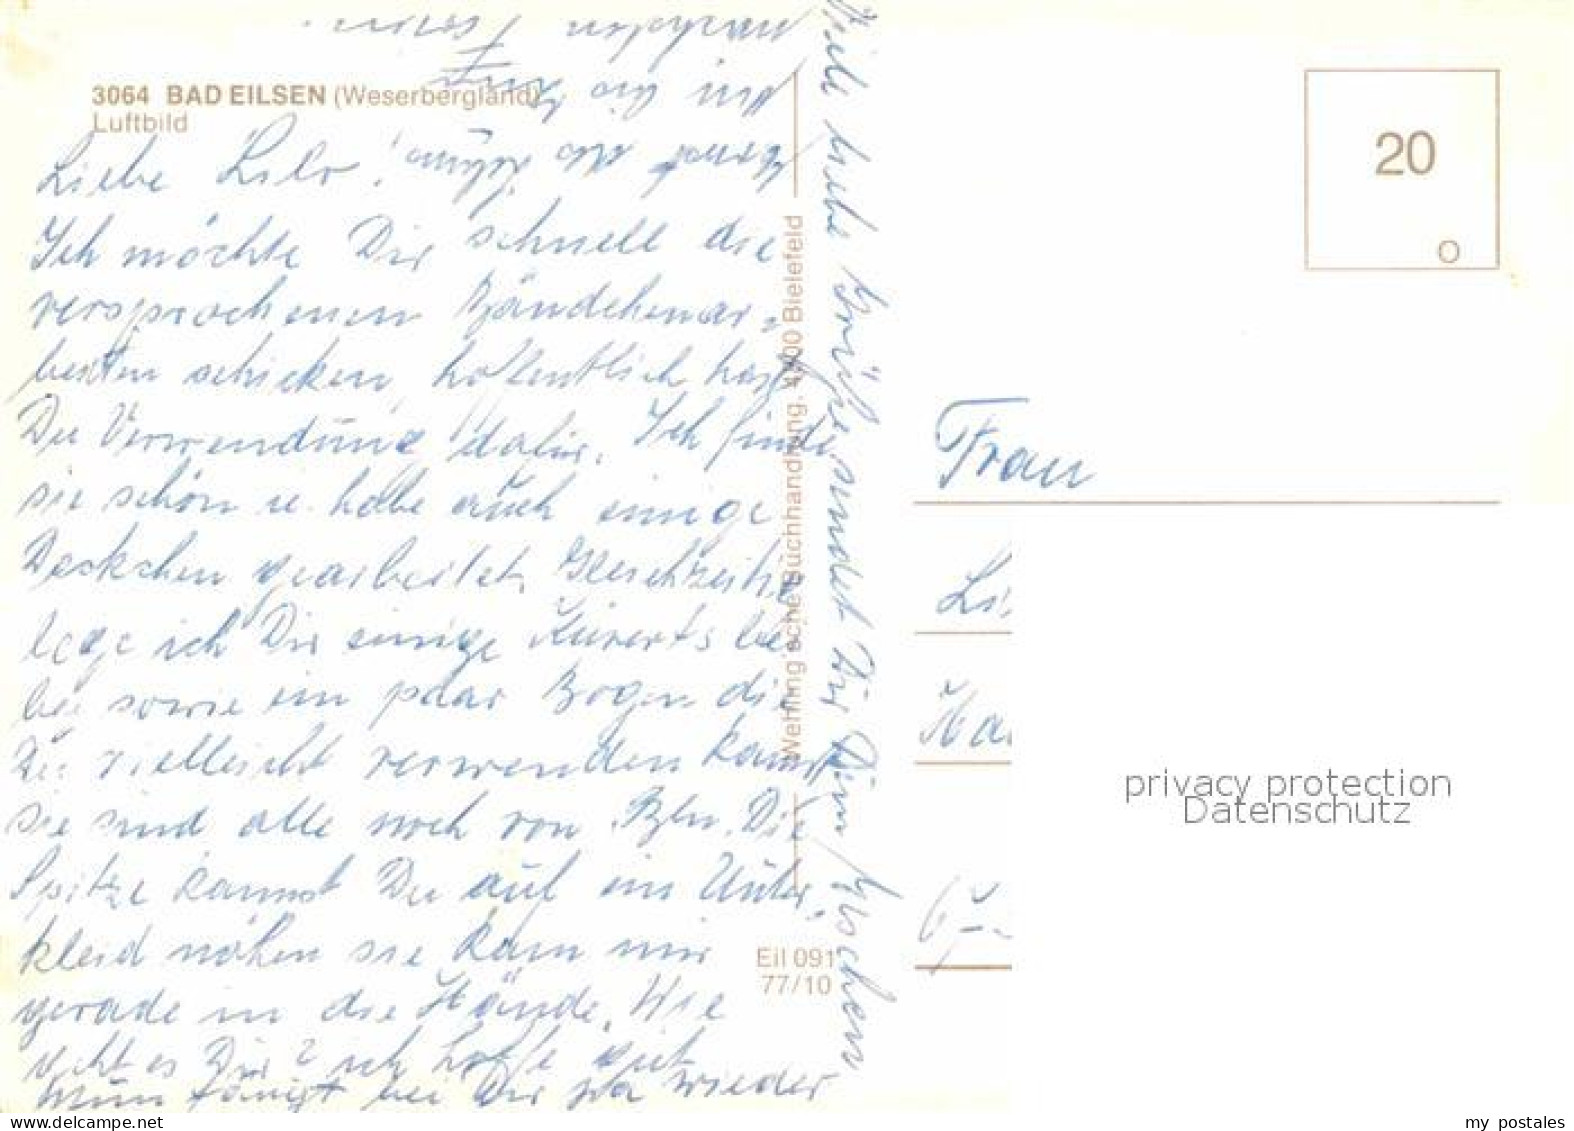 3064 BAD EILSEN (Weserbergland)
Luftbild
Liebe Lilo!
Ich möchte Dir schnell die
versprochenen Bändchenar-
beiten schicken, hoffentlich hast
Du Verwendung dafür. Ich finde
sie schön u. habe auch einige
Deckchen gearbeitet. Gleichzeitig
lege ich Dir einige Kuverts be
bei sowie ein paar Bogen die
Du vielleicht verwenden kannst
sie sind alle noch von Bln. Die
Spitze kannst Du auf ein Unter-
kleid nähen sie kam mir
gerade in die Hände. Wie
geht es Dir? ich hoffe gut.
Nun fängt bei Dir ja wieder
Viele liebe Grüße sendet Dir Dein
Wehling'sche Buchhandlung, 4800 Bielefeld
Eil 091
77/10
20
Frau
Li
Ha
privacy protection
Datenschutz
my postales